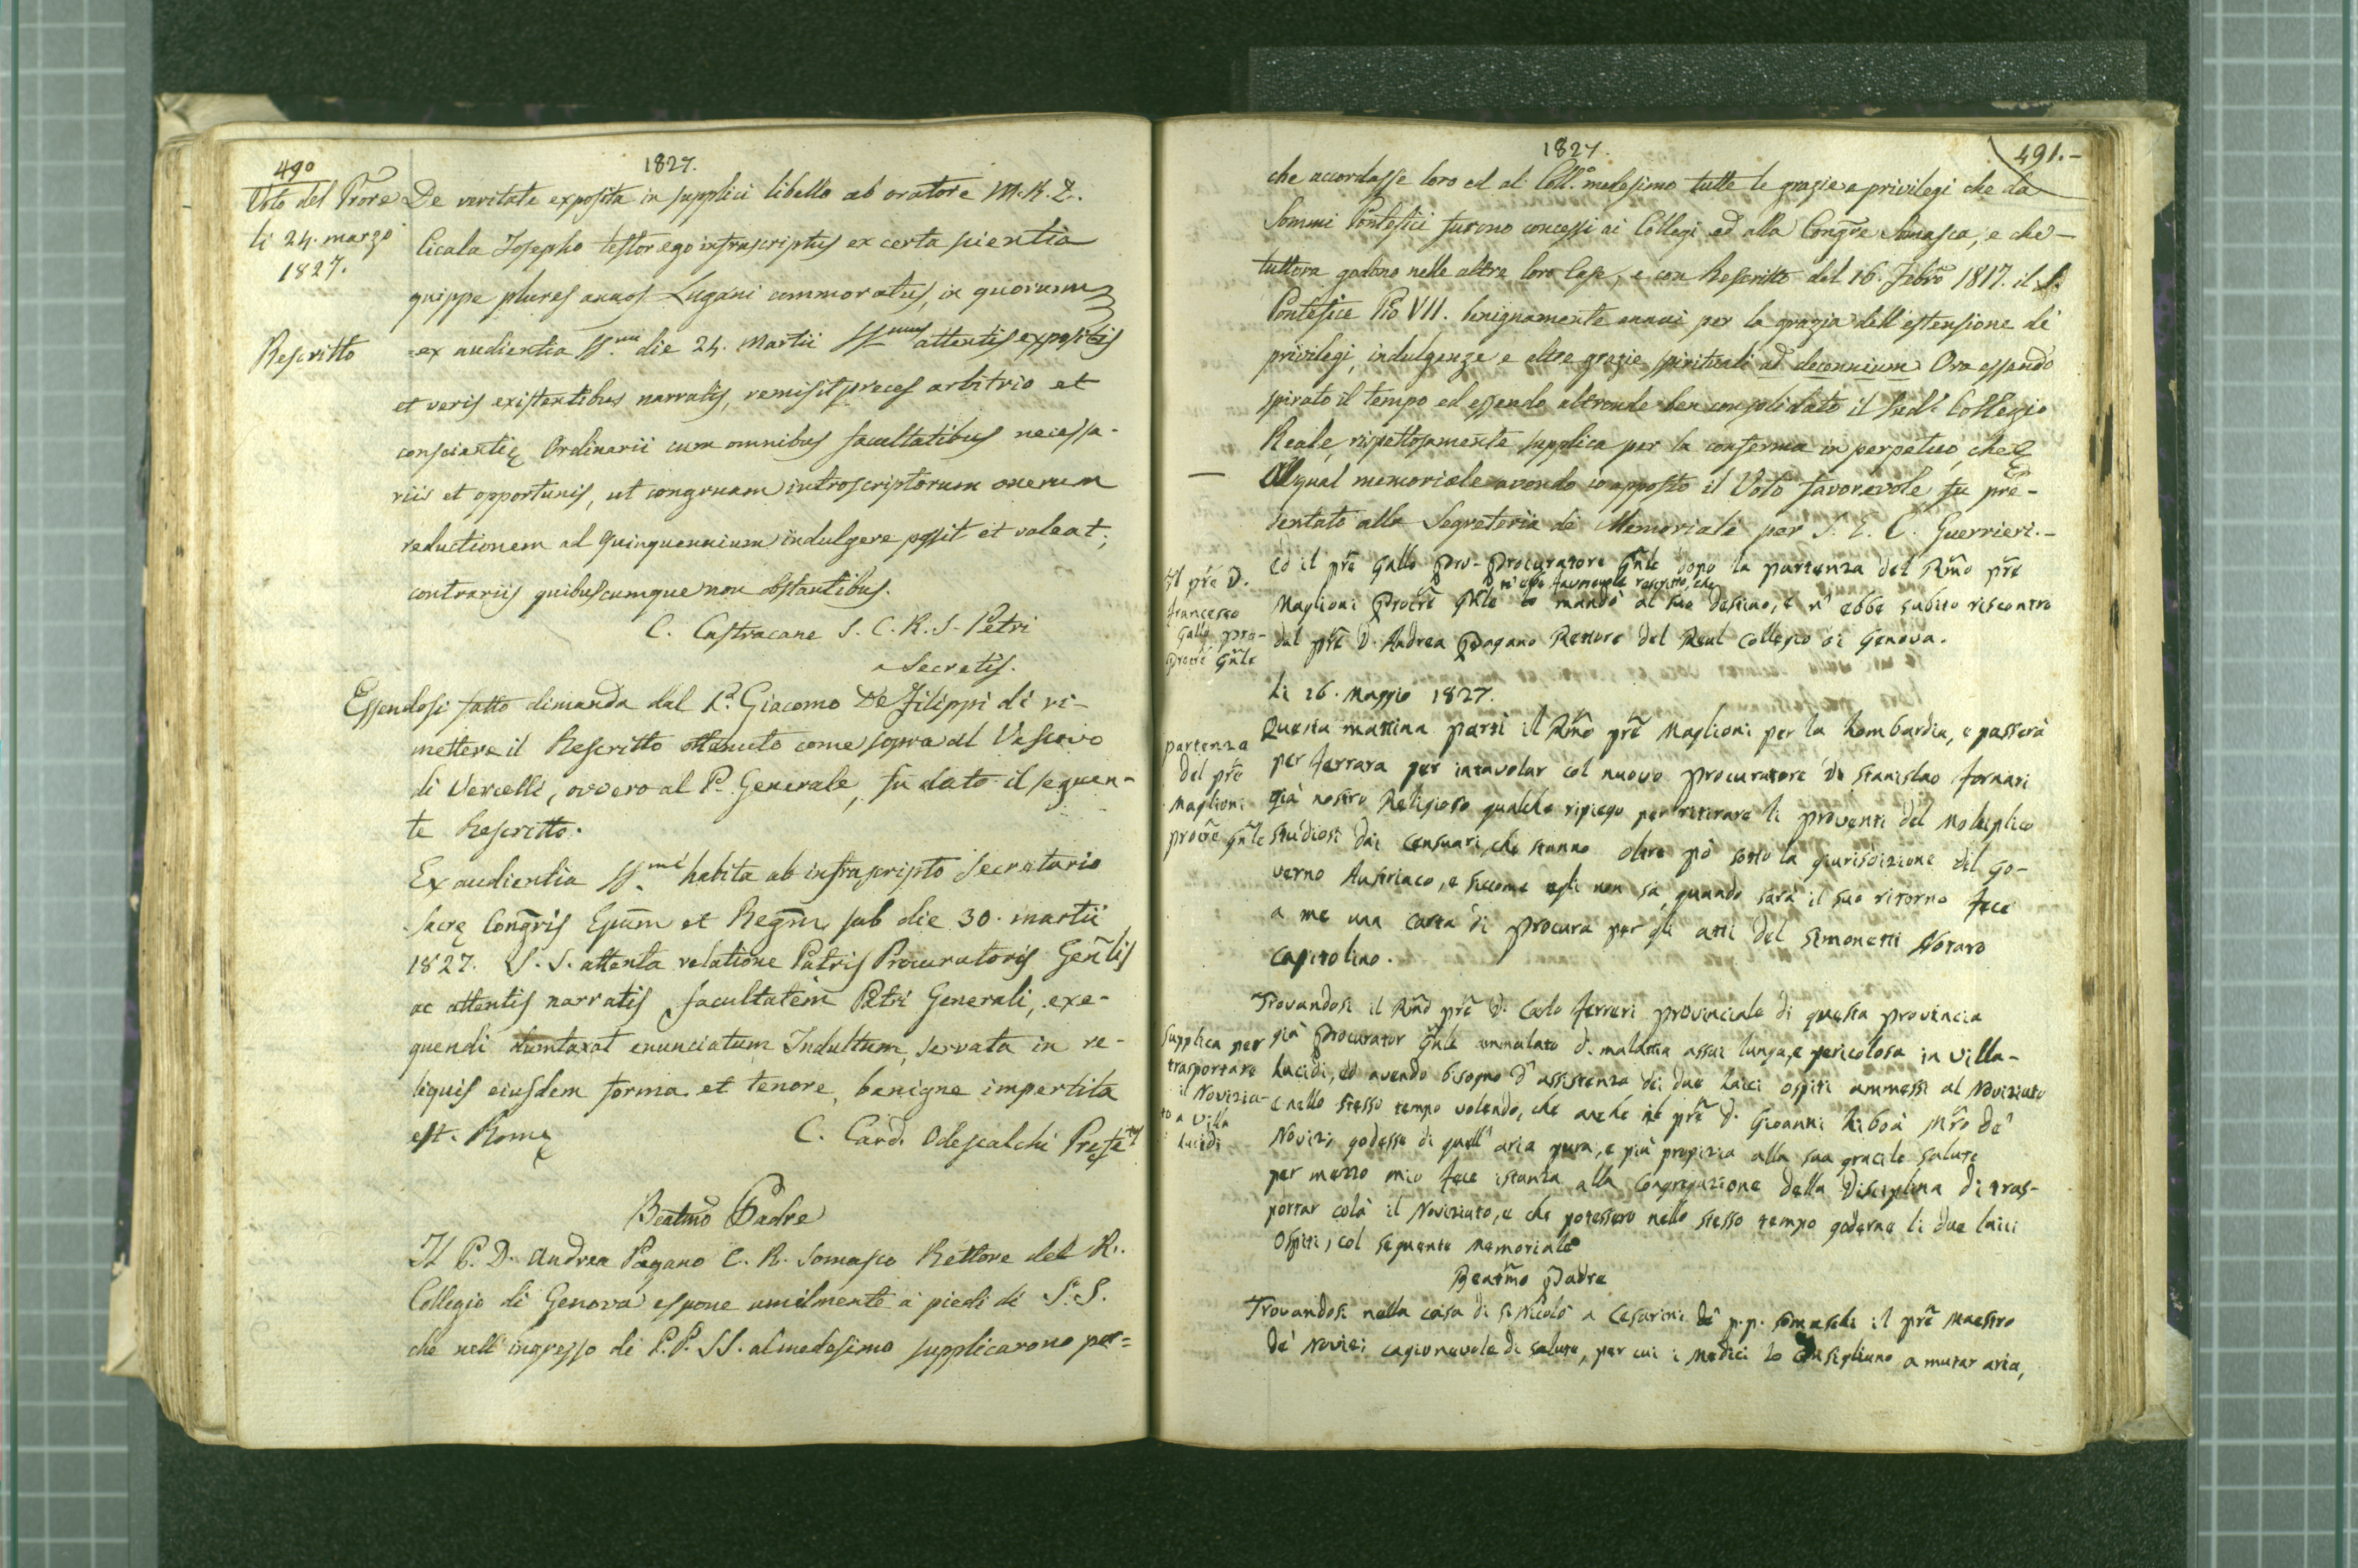 490
1827.
Voto del Prore
li 24. marzo
1827.
De veritate exposita in supplici libello ab oratore M. R. D.
Cicala Josepho testor ego infrascriptus ex certa scientia
quippe plures annos Lugani commoratus, in quorum
Rescritto
ex audientia SS.mi die 24. Martii SS.mus attentis expositis
et veris existentibus narratis, remisit preces arbitrio et
conscientię Ordinarii cum omnibus facultatibus necessa-
riis et opportunis, ut congruam introscriptorum onerum
reductionem ad Quinquennium indulgere possit et valeat;
contrariis quibuscumque non obstantibus.
C. Castracane S. C. R. S. Petri
a Secretis.
Essendosi fatto dimanda dal P. Giacomo De Filippi di ri-
mettere il Rescritto ottenuto come sopra al Vescovo
di Vercelli, ovvero al P. Generale, fu dato il seguen-
te Rescritto.
Ex audientia SS.mi habita ab infrascripto Secretario
Sacrę Congris Epum et Regm sub die 30. martii
1827. S. S. attenta relatione Patris Procuratoris Genlis
ac attentis narratis, facultatem Patri Generali, exe-
quendi dumtaxat enunciatum Indultum, servata in re-
liquis eiusdem forma et tenore, benigne impertita
est. Romę
C. Card. Odescalchi Prefetus
Beatmo Padre
Il P. D. Andrea Pagano C. R. Somasco Rettore del R.
Collegio di Genova espone umilmente a' piedi di S. S.
che nell'ingresso di P.P. SS. al medesimo supplicarono per=
1827.
491.-
che accordasse loro ed al Coll.o medesimo tutte le grazie e privilegi che da
Sommi Pontefici furono concessi ai Collegi ed alla Congre Somasca, e che
tuttora godono nelle altre loro Case, e con Rescritto del 16. Febro 1817. il S.
Pontefice Pio VII. benignamente annuì per la grazia dell'estensione de'
privilegi, indulgenze e altre grazie spirituali ad decennium. Ora essendo
spirato il tempo ed essendo altronde ben consolidato il sud.o Collegio
Reale, rispettosamente supplica per la conferma in perpetuo, che
Al qual memoriale avendo io apposto il Voto favorevole, fu pre-
sentato alla Segreteria de' Memoriali per S. E. C. Guerrieri.-
Il pre D.
Francesco
Gallo pro-
procre Gnle
Ed il pre Gallo Pro-Procuratore Gnle dopo la partenza del Rmo pre
n'ebbe favorevole rescritto, che
Maglioni Procre Gnle lo mandò al suo destino, e n'ebbe subito riscontro
dal pre D. Andrea Pagano Rettore del Real Collegio di Genova.
li 16. Maggio 1827.
partenza
del pre
Maglioni
procre Gnle
Questa mattina partì il Rmo pre Maglioni per la Lombardia, e passerà
per Ferrara per intavolar col nuovo procuratore D. Stanislao Fornari
già nostro Religioso qualche ripiego per ritirare li proventi del Moltiplico
Studiosi dai Censuari, che stanno oltre pò sotto la giurisdizione del Go-
verno Austriaco, e siccome egli non sà, quando sarà il suo ritorno fece
a me una carta di procura per gli atti del Simonetti Notaro
Capitolino.
Supplica per
trasportare
il Novizia-
to a Villa
Lucidi
Trovandosi il Rmo pre D. Carlo Ferreri provinciale di questa provincia
già Procurator Gnle ammalato di malattia assai lunga, e pericolosa in Villa-
Lucidi, ed avendo bisogno d'assistenza di due Laici ospiti ammessi al Noviziato
e nello stesso tempo volendo, che anche il pre D. Gioanni Liboà Mro de'
Novizi godesse di quell'aria pura, e più propizia alla sua gracile salute
per mezzo mio fece istanza alla Congregazione della Disciplina di tras-
portar colà il Noviziato, e che potessero nello stesso tempo goderne li due laici
Ospiti, col seguente memoriale
Beatmo Padre
Trovandosi nella casa di S. Nicolò a Cesarini de' p.p. Somaschi il pre Maestro
de' Novizi cagionevole di salute, per cui i Medici lo consigliano a mutar aria,